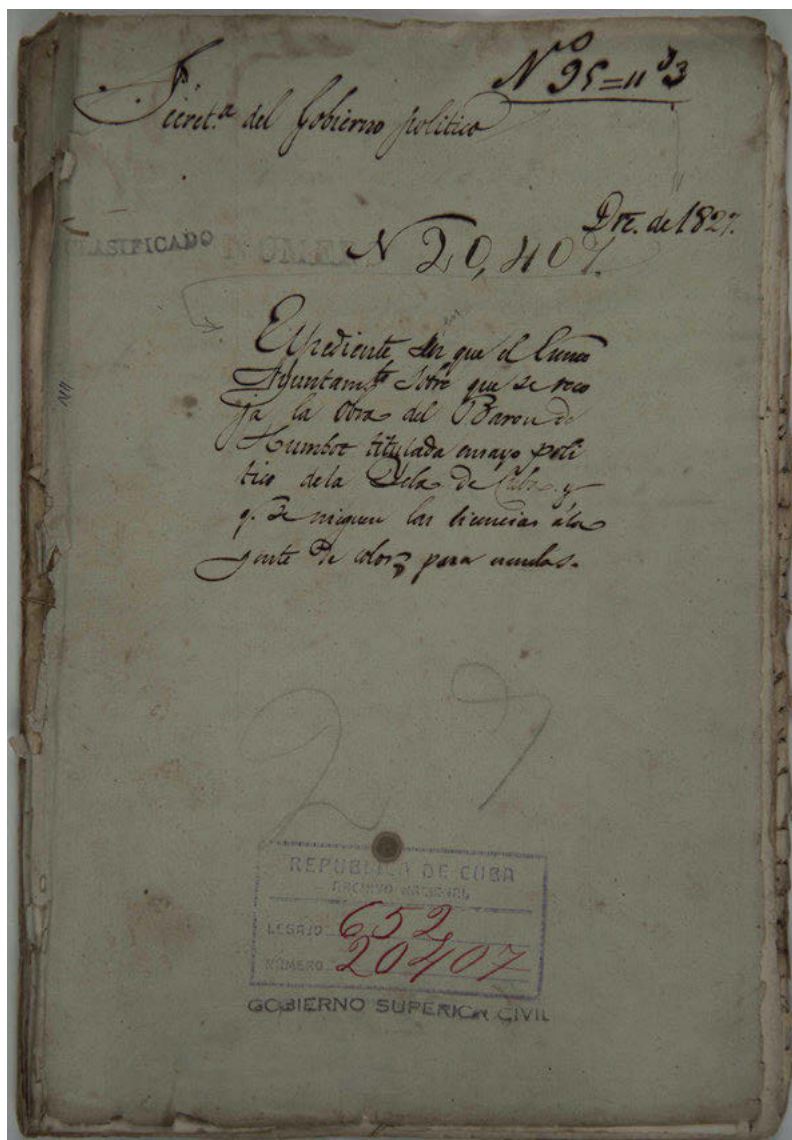 Nº 95=11º3
Secret.ª del Gobierno politico
Dre. de 1827.
CLASIFICADO NUMERO
N 20,407.
Expediente en que el Exmo
Ayuntam.to sobre que se reco
ja la Obra del Baron de
Humbot titulada ensayo poli
tico dela Ysla de Cuba y
q. se nieguen las licencias ála
gente de color para escuelas.
27
REPUBLICA DE CUBA
ARCHIVO NACIONAL
LEGAJO 652
NUMERO 20407
GOBIERNO SUPERIOR CIVIL